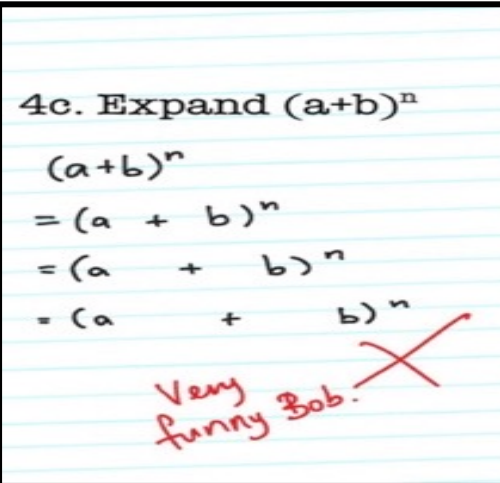 4c. Expand (a+b)ⁿ
(a+b)ⁿ
= (a + b)ⁿ
= (a + b)ⁿ
= (a + b)ⁿ
Very
funny Bob.